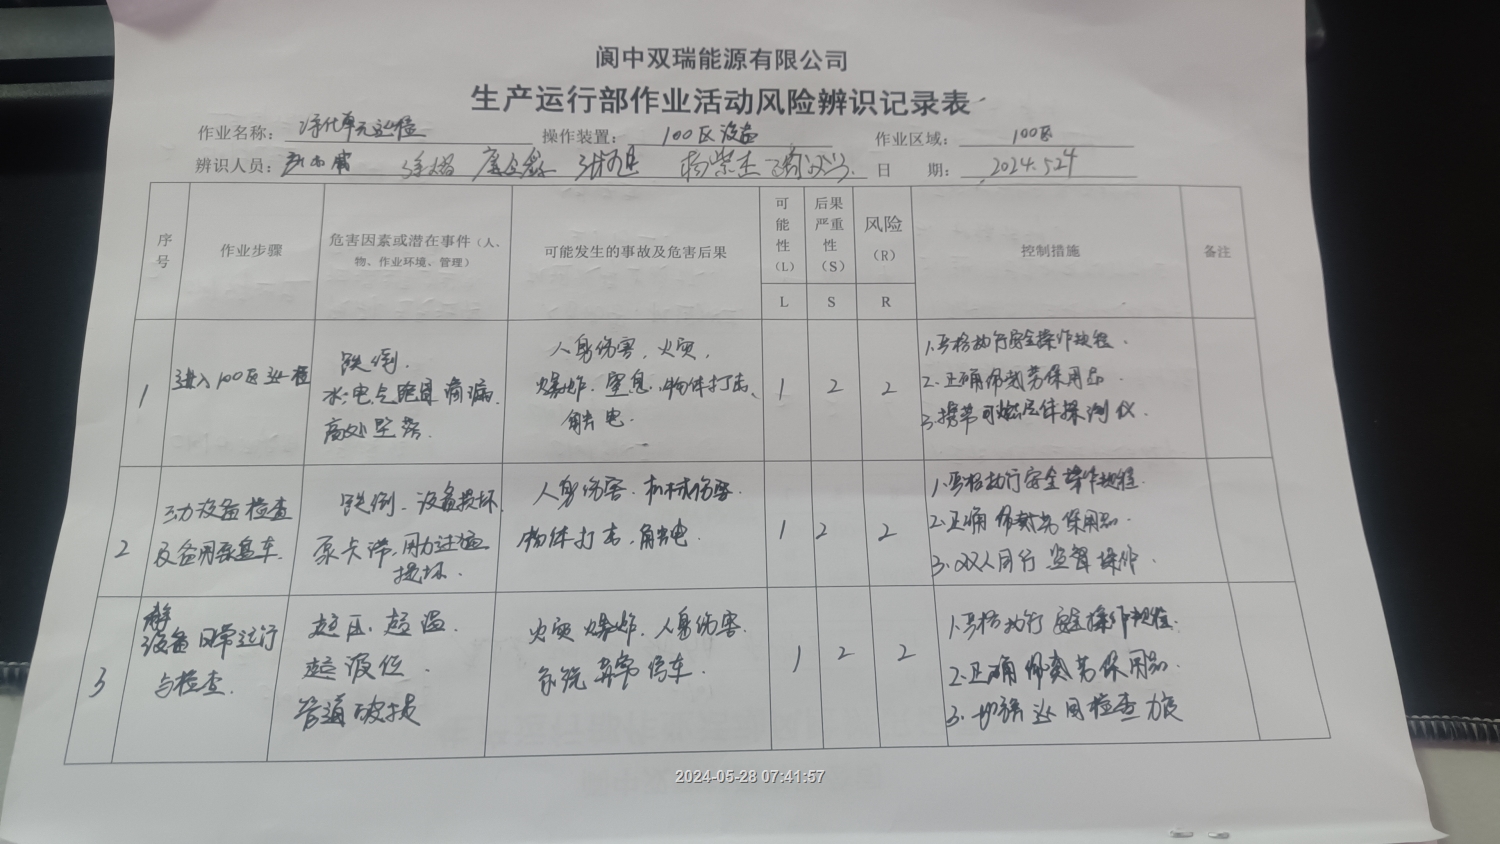 阆中双瑞能源有限公司
生产运行部作业活动风险辨识记录表
作业名称： 净化单元巡检 操作装置： 100区设备 作业区域： 100区
辨识人员： 日 期： 2024.5.24
序号 作业步骤 危害因素或潜在事件（人、物、作业环境、管理） 可能发生的事故及危害后果 可能性（L） 后果严重性（S） 风险（R） 控制措施 备注
L S R
1 进入100区巡检 跌倒. 水.电气跑冒滴漏. 高处坠落. 人身伤害，火灾， 爆炸．窒息．物体打击、 触电. 1 2 2 1.严格执行安全操作规程． 2.正确佩戴劳保用品． 3.携带可燃气体探测仪．
2 动设备检查及备用泵盘车. 跌倒．设备损坏 泵卡滞，用力过猛 损坏． 人身伤害．机械伤害． 物体打击，触电． 1 2 2 1.严格执行安全操作规程． 2.正确佩戴劳保用品． 3.双人同行 监督操作．
3 静设备日常运行与检查. 超压．超温． 超液位． 管道破损 火灾 爆炸．人身伤害． 系统异常停车． 1 2 2 1.严格执行安全操作规程． 2.正确佩戴劳保用品． 3.加强巡回检查力度
2024-05-28 07:41:57